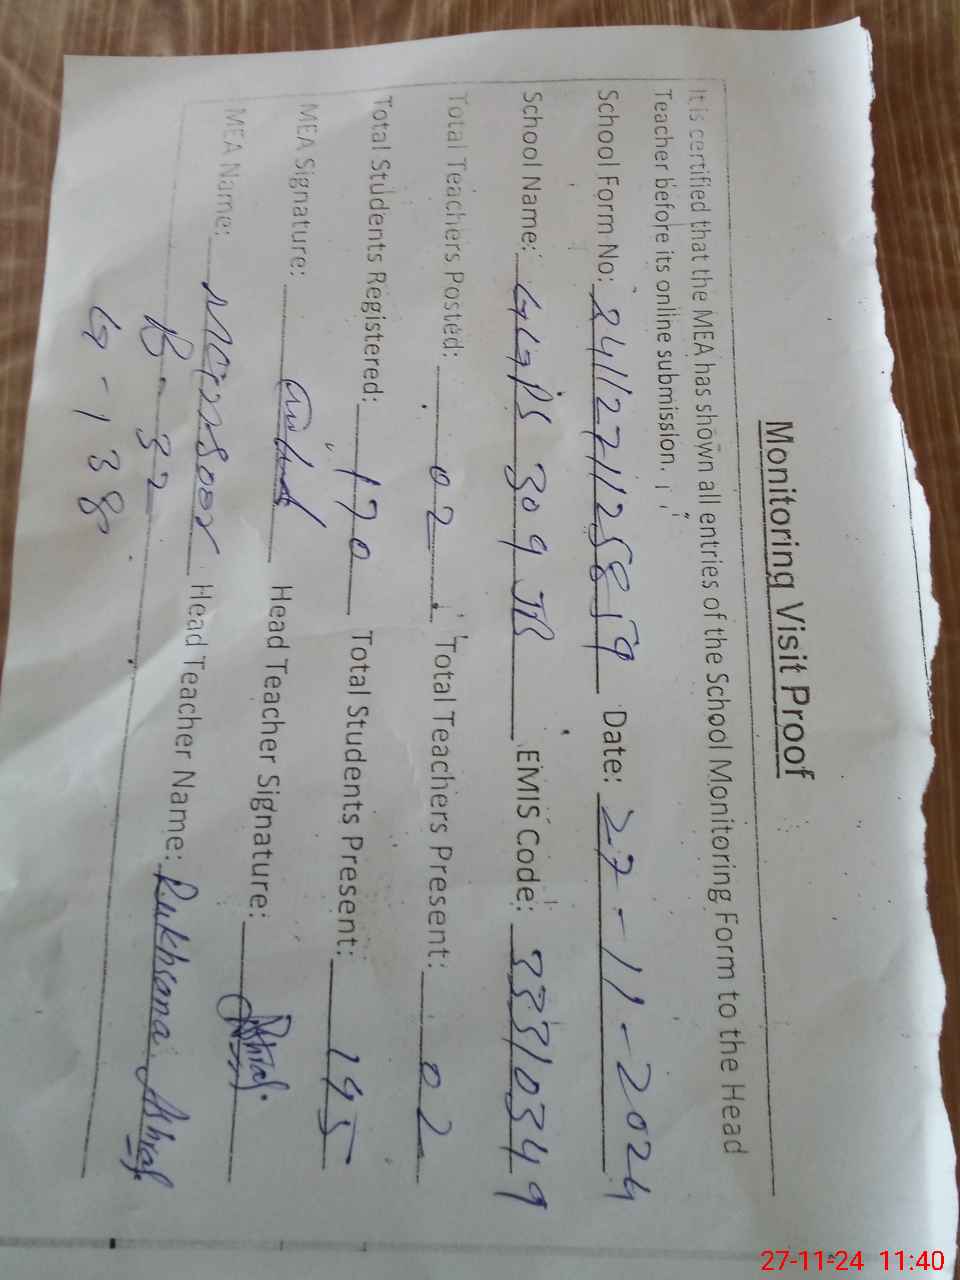 Monitoring Visit Proof
It is certified that the MEA has shown all entries of the School Monitoring Form to the Head
Teacher before its online submission.
School Form No: 24112711258 19 Date: 27-11-2024
School Name: GGPS 309 JB EMIS Code: 33310349
Total Teachers Posted: 02 Total Teachers Present: 02
Total Students Registered: 170 Total Students Present: 145
MEA Signature: Head Teacher Signature: Ashraf
MEA Name: Head Teacher Name: Rukhsana Ashraf
B-32
G-138
27-11-24 11:40